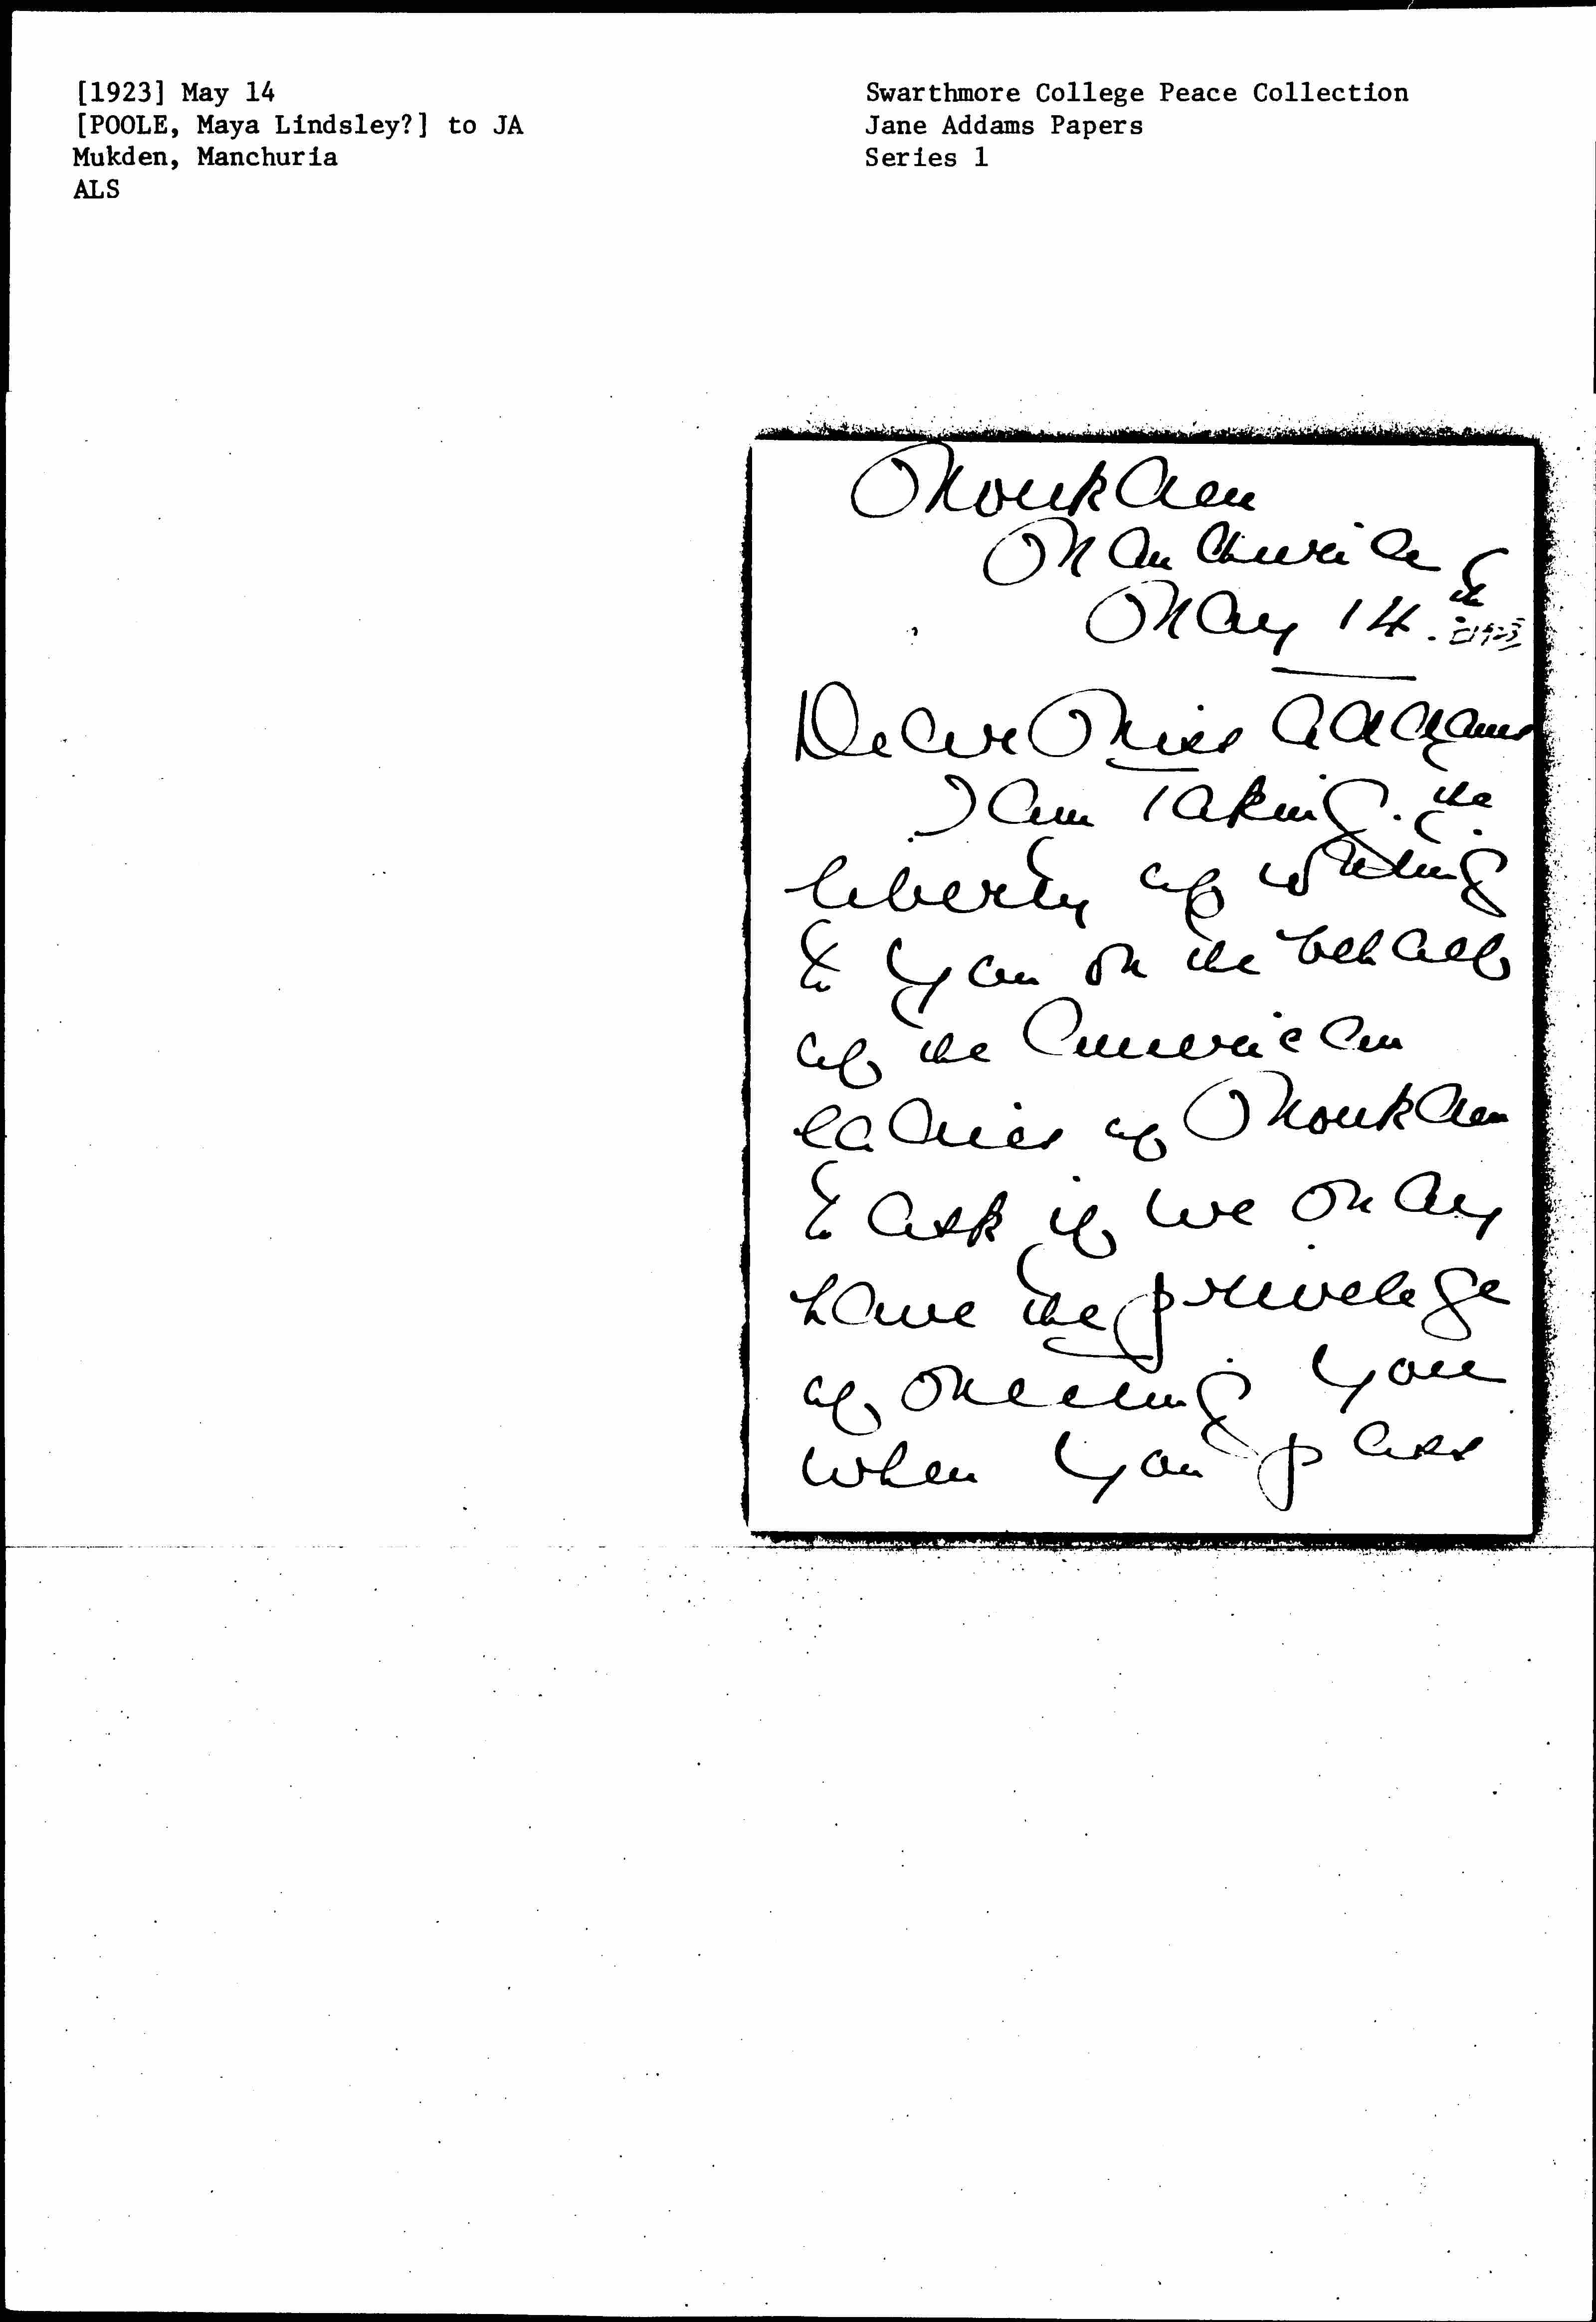 [1923] May 14
[POOLE, Maya Lindsley?] to JA
Mukden, Manchuria
ALS
Swarthmore College Peace Collection
Jane Addams Papers
Series 1
Moukden
Manchuria
May 14.th [1923]
Dear Miss Addams
I am taking the
liberty of writing
to you on the behalf
of the American
ladies of Moukden
to ask if we may
have the privelege
of meeting you
when you pass